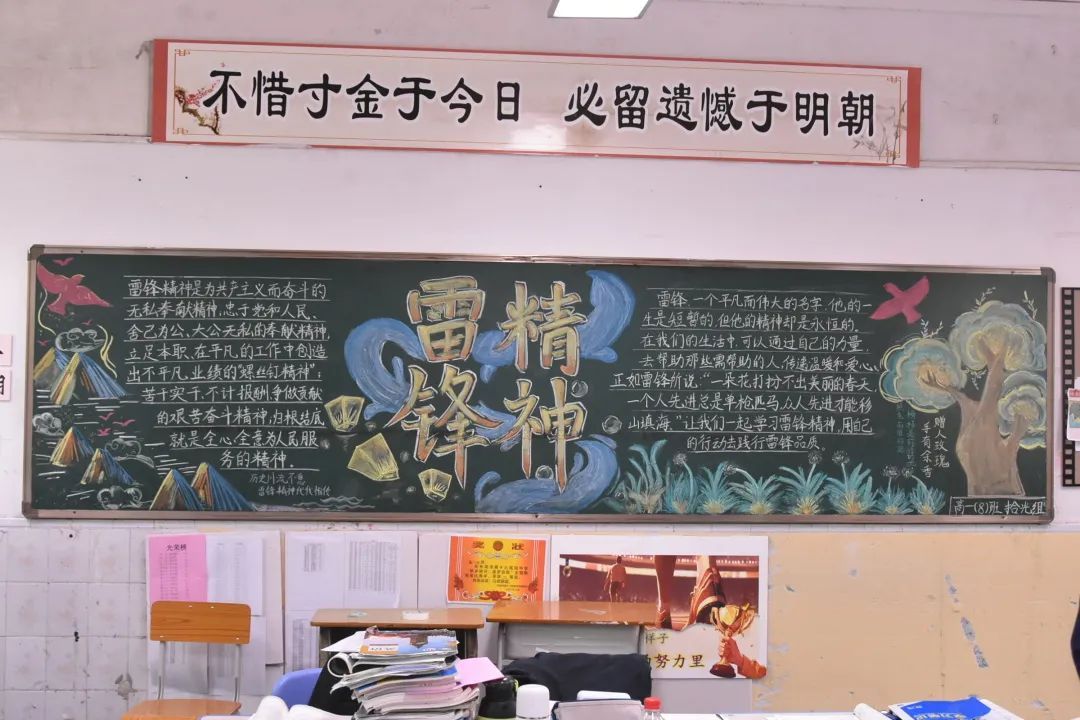 不惜寸金于今日 必留遗憾于明朝
雷锋精神是为共产主义而奋斗的
无私奉献精神,忠于党和人民、
舍己为公、大公无私的奉献精神,
立足本职、在平凡的工作中创造
出不平凡业绩的“螺丝钉精神”;
苦干实干、不计报酬,争做贡献
的艰苦奋斗精神,归根结底,
就是全心全意为人民服
务的精神。
历史川流不息
雷锋精神代代相传
雷锋
精神
雷锋,一个平凡而伟大的名字,他的一
生是短暂的,但他的精神却是永恒的。
在我们的生活中,可以通过自己的力量,
去帮助那些需帮助的人,传递温暖和爱心,
正如雷锋所说:“一朵花打扮不出美丽的春天,
一个人先进总是单枪匹马,众人先进才能移
山填海。”让我们一起学习雷锋精神,用自己
的行动去践行雷锋品质
赠人玫瑰
手有余香
高一(8)班 拾光组
光荣榜
奖状
样子
努力里